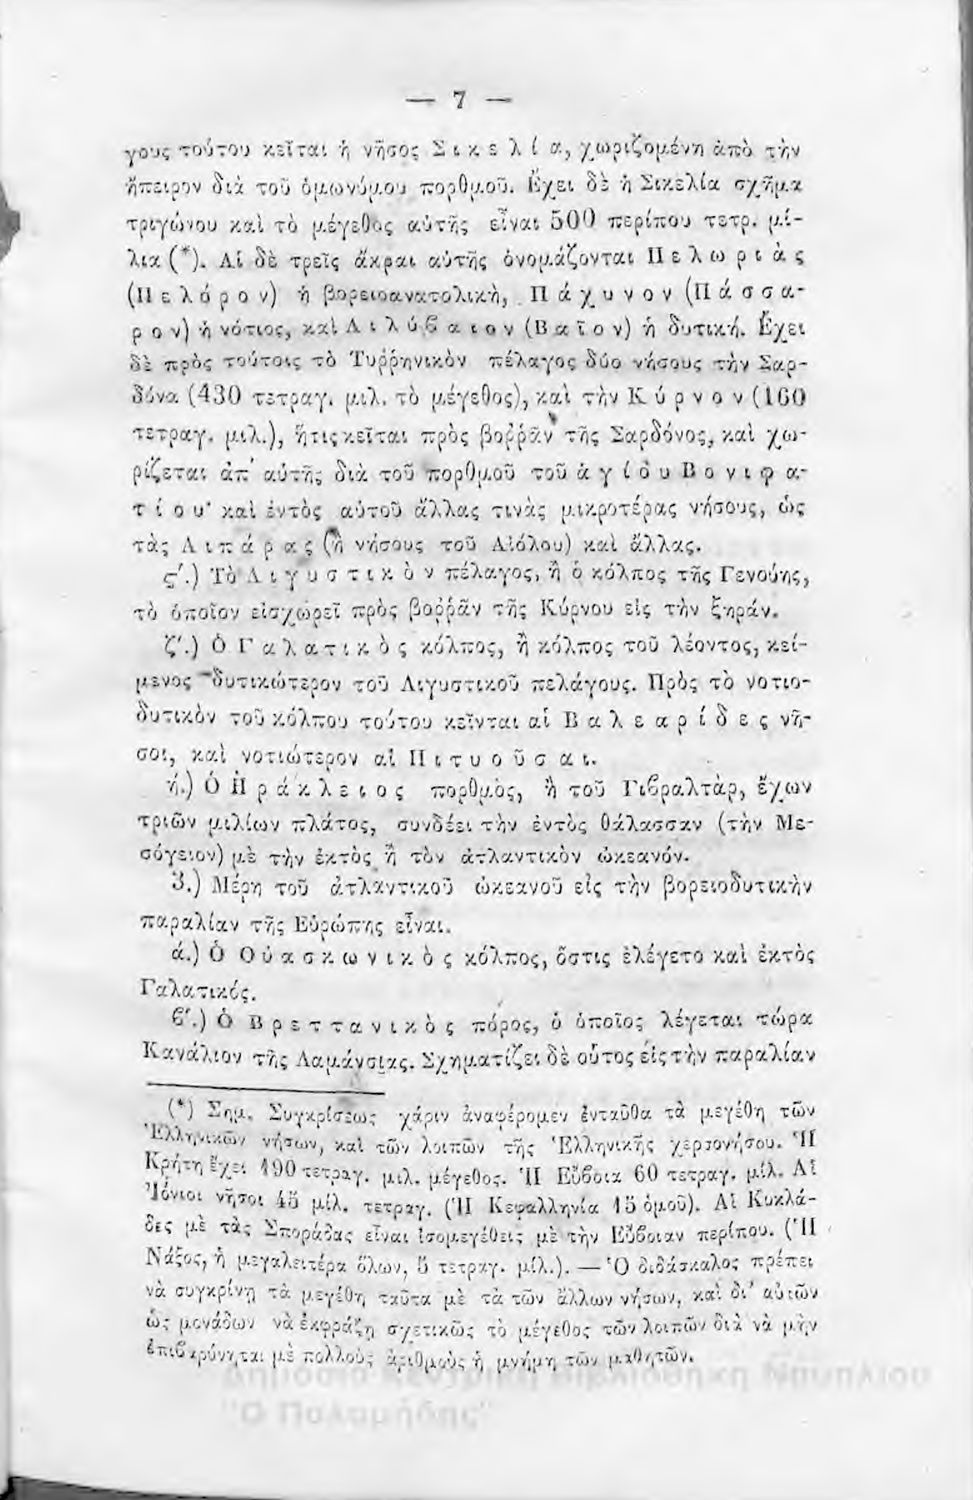 — 7 —
γους τούτου κεῖται ἡ νῆσος Σικελία, χωριζομένη ἀπὸ τὴν
ἤπειρον διὰ τοῦ ὁμωνύμου πορθμοῦ. Ἔχει δὲ ἡ Σικελία σχῆμα
τριγώνου καὶ τὸ μέγεθος αὐτῆς εἶναι 500 περίπου τετρ. μί-
λια (*). Αἱ δὲ τρεῖς ἄκραι αὐτῆς ὀνομάζονται Πελωριὰς
(Πελόρον) ἡ βορειοανατολικὴ, Πάχυνον (Πάσσα-
ρον) ἡ νότιος, καὶ Λιλύβαιον (Βαῖον) ἡ δυτική. Ἔχει
δὲ πρὸς τούτοις τὸ Τυῤῥηνικὸν πέλαγος δύο νήσους τὴν Σαρ-
δόνα (430 τετραγ. μιλ. τὸ μέγεθος), καὶ τὴν Κύρνον (160
τετραγ. μιλ.), ἥτις κεῖται πρὸς βοῤῥᾶν τῆς Σαρδόνος, καὶ χω-
ρίζεται ἀπ' αὐτῆς διὰ τοῦ πορθμοῦ τοῦ ἁγίου Βονιφα-
τίου· καὶ ἐντὸς αὐτοῦ ἄλλας τινὰς μικροτέρας νήσους, ὡς
τὰς Λιπάρας (ἢ νήσους τοῦ Αἰόλου) καὶ ἄλλας.
ς'.) Τὸ Λιγυστικὸν πέλαγος, ἢ ὁ κόλπος τῆς Γενούης,
τὸ ὁποῖον εἰσχωρεῖ πρὸς βοῤῥᾶν τῆς Κύρνου εἰς τὴν ξηράν.
ζ'.) Ὁ Γαλατικὸς κόλπος, ἢ κόλπος τοῦ λέοντος, κεί-
μενος δυτικώτερον τοῦ Λιγυστικοῦ πελάγους. Πρὸς τὸ νοτιο-
δυτικὸν τοῦ κόλπου τούτου κεῖνται αἱ Βαλεαρίδες νῆ-
σοι, καὶ νοτιώτερον αἱ Πιτυοῦσαι.
ή.) Ὁ Ἡράκλειος πορθμὸς, ἢ τοῦ Γιβραλτὰρ, ἔχων
τριῶν μιλίων πλάτος, συνδέει τὴν ἐντὸς θάλασσαν (τὴν Με-
σόγειον) μὲ τὴν ἐκτὸς ἢ τὸν ἀτλαντικὸν ὠκεανόν.
3.) Μέρη τοῦ ἀτλαντικοῦ ὠκεανοῦ εἰς τὴν βορειοδυτικὴν
παραλίαν τῆς Εὐρώπης εἶναι.
ά.) Ὁ Οὐασκωνικὸς κόλπος, ὅστις ἐλέγετο καὶ ἐκτὸς
Γαλατικός.
β'.) Ὁ Βρεττανικὸς πόρος, ὁ ὁποῖος λέγεται τώρα
Κανάλιον τῆς Λαμάνσιας. Σχηματίζει δὲ οὗτος εἰς τὴν παραλίαν
(*) Σημ. Συγκρίσεως χάριν ἀναφέρομεν ἐνταῦθα τὰ μεγέθη τῶν
Ἑλληνικῶν νήσων, καὶ τῶν λοιπῶν τῆς Ἑλληνικῆς χερσονήσου. Ἡ
Κρήτη ἔχει 190 τετραγ. μιλ. μέγεθος. Ἡ Εὔβοια 60 τετραγ. μίλ. Αἱ
Ἰόνιοι νῆσοι 45 μίλ. τετραγ. (Ἡ Κεφαλληνία 15 ὁμοῦ). Αἱ Κυκλά-
δες μὲ τὰς Σποράδας εἶναι ἰσομεγέθεις μὲ τὴν Εὔβοιαν περίπου. (Ἡ
Νάξος, ἡ μεγαλειτέρα ὅλων, 5 τετραγ. μίλ.). — Ὁ διδάσκαλος πρέπει
νὰ συγκρίνῃ τὰ μεγέθη ταῦτα μὲ τὰ τῶν ἄλλων νήσων, καὶ δι' αὐτῶν
ὡς μονάδων νὰ ἐκφράζῃ σχετικῶς τὸ μέγεθος τῶν λοιπῶν διὰ νὰ μὴν
ἐπιβαρύνηται μὲ πολλοὺς ἀριθμοὺς ἡ μνήμη τῶν μαθητῶν.
Δημόσια Κεντρική Βιβλιοθήκη Ναυπλίου
"Ο Παλαμήδης"